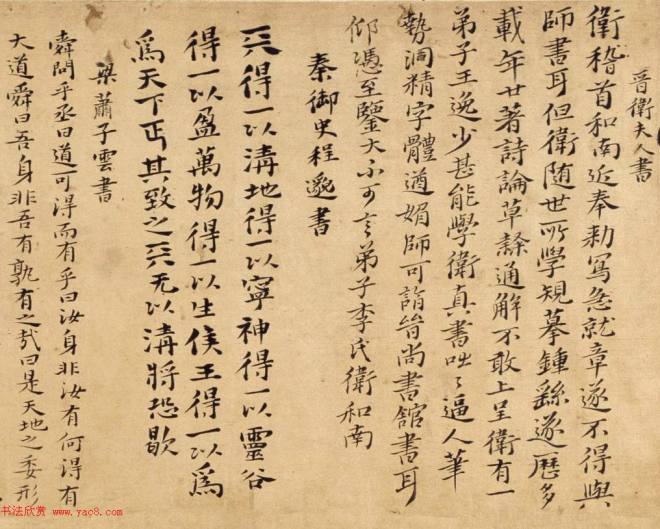 晋衛夫人書
衛稽首和南近奉勑寫急就章遂不得與
師書耳但衛随世所學規摹鍾繇遂歷多
載年廿著詩論草隷通解不敢上呈衛有一
弟子王逸少甚能學衛真書咄々逼人筆
勢洞精字體遒媚師可詣晉尚書館書耳
仰憑至鑒大不可言弟子李氏衛和南
秦御史程邈書
天得一以清地得一以寧神得一以靈谷
得一以盈萬物得一以生侯王得一以為
爲天下正其致之天无以清將恐歇
梁蕭子雲書
舜問乎丞曰道可得而有乎曰汝身非汝有何得有
大道舜曰吾身非吾有孰有之哉曰是天地之委形
书法欣赏 www.yac8.com